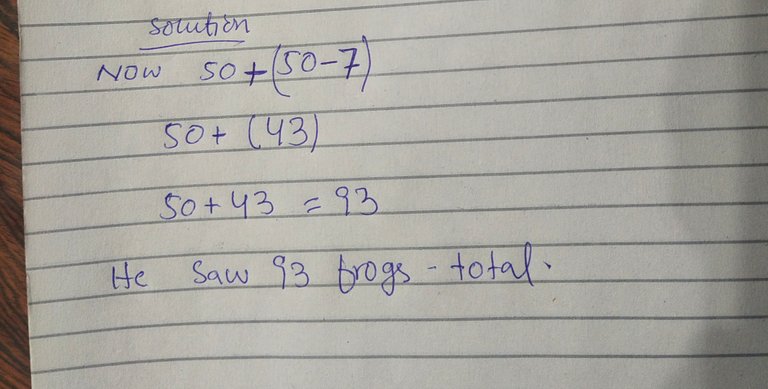 Solution
Now 50+(50-7)
50+ (43)
50+43 = 93
He Saw 93 frogs - total.